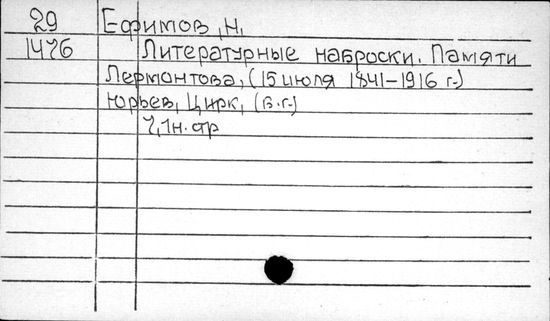 29 Ефимов, Н,
1476 Литературные наброски. Памяти
Лермонтова, (15 июля 1841-1916 г.)
Юрьев, Цирк, (в.г.)
7,1н.стр